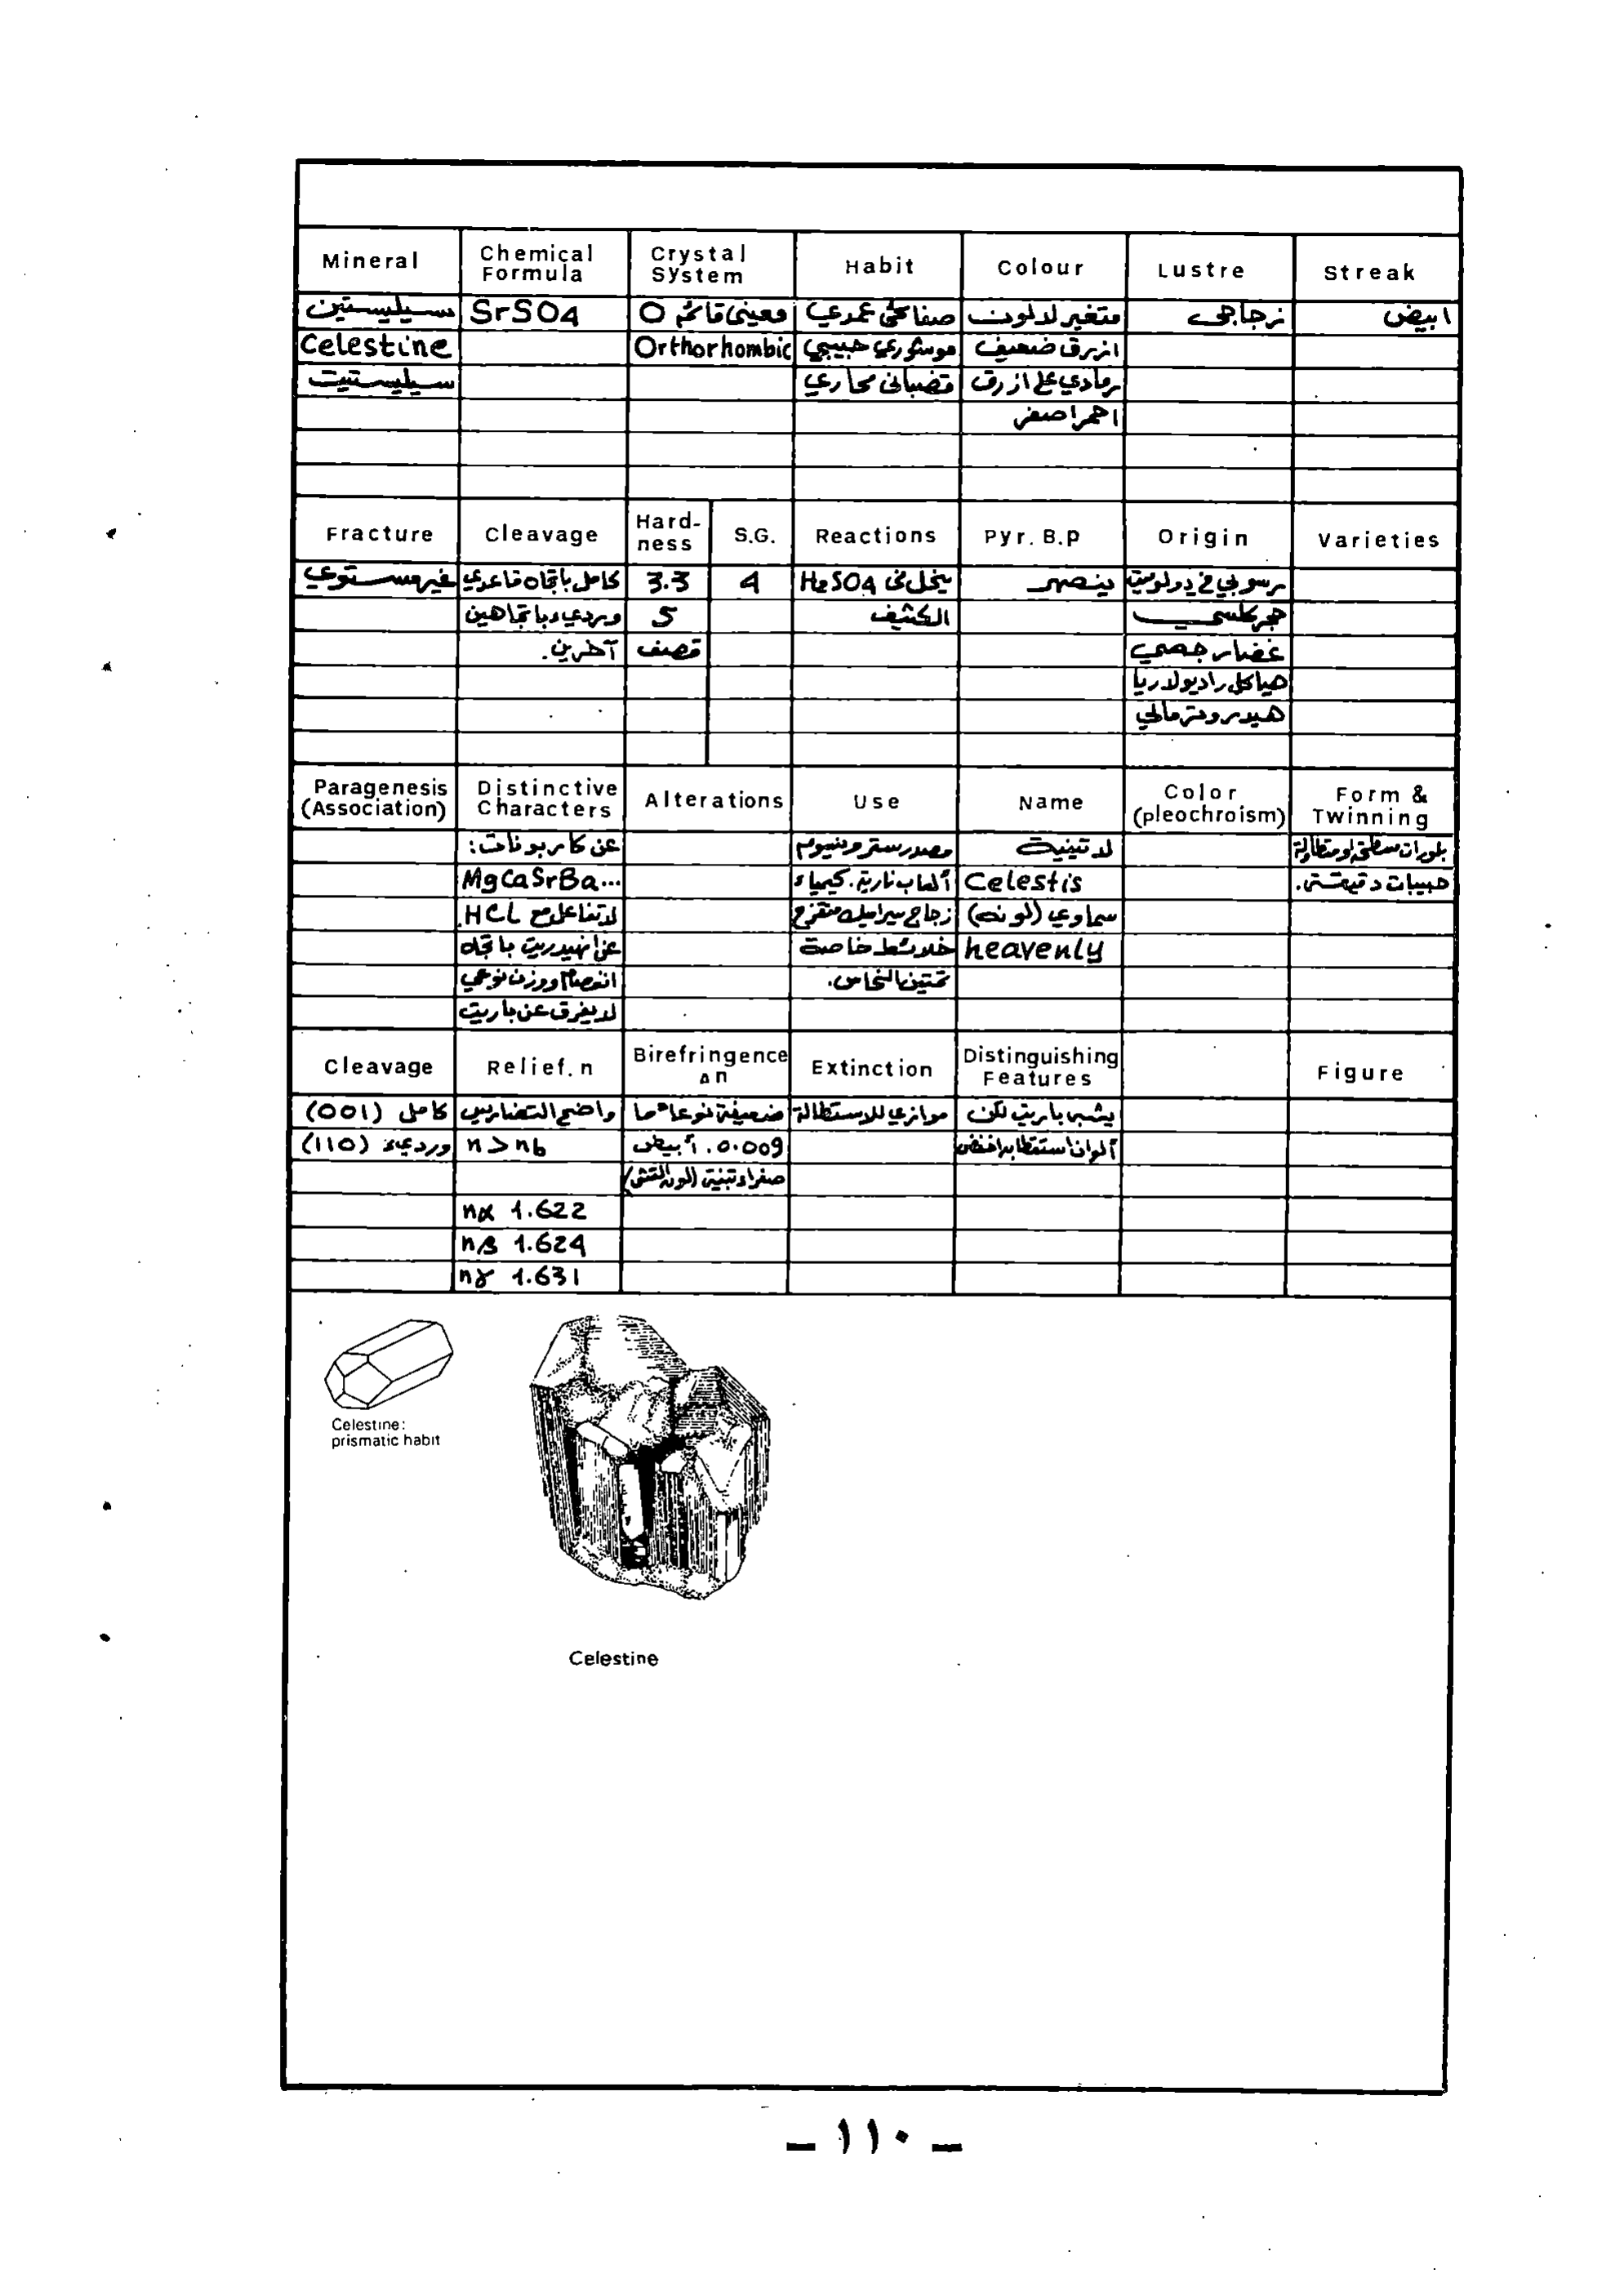 Mineral Chemical Formula Crystal System Habit Colour Lustre Streak
سيليستين SrSO4 معيني قائم O صفائحي عمدي متغير لا لون زجاجي ابيض
Celestine Orthorhombic موشوري حبيبي ازرق ضعيف
سيليستيت قضباني محاري رمادي على ازرق
احمر اصفر
Fracture Cleavage Hard-ness S.G. Reactions Pyr. B.p Origin Varieties
غير مستوي كامل باتجاه قاعدي 3.3 4 ينحل في H2SO4 ينصهر رسوبي في دولوميت
وردي وباتجاهين 5 الكثيف حجر كلسي
آخرين. قصف غضار جصي
هياكل راديولاريا
هيدروترمالي
Paragenesis (Association) Distinctive Characters Alterations Use Name Color (pleochroism) Form & Twinning
عن كاربونات: مصدر سترونسيوم لاتينية بلورات سطحية او متطاولة
MgCaSrBa... ألعاب نارية. كيمياء Celestis حبيبات دقيقة.
لا تتفاعل مع HCL. زجاج سيراميك متقزح سماوي (لونه)
عن انهيدريت باتجاه خلائط خاصة heavenly
انفصام ووزن نوعي تمتين النحاس.
لا يفرق عن باريت
Cleavage Relief. n Birefringence Δn Extinction Distinguishing Features Figure
كامل (001) واضح التضاريس ضعيفة نوعا ما موازي للاستطالة يشبه باريت لكن
وردي (110) n > nb 0.009. أبيض ألوان استقطابه اخفض
صفراء تبنية (لون القش)
nα 1.622
nβ 1.624
nγ 1.631
Celestine:
prismatic habit
Celestine
– ١١٠ –